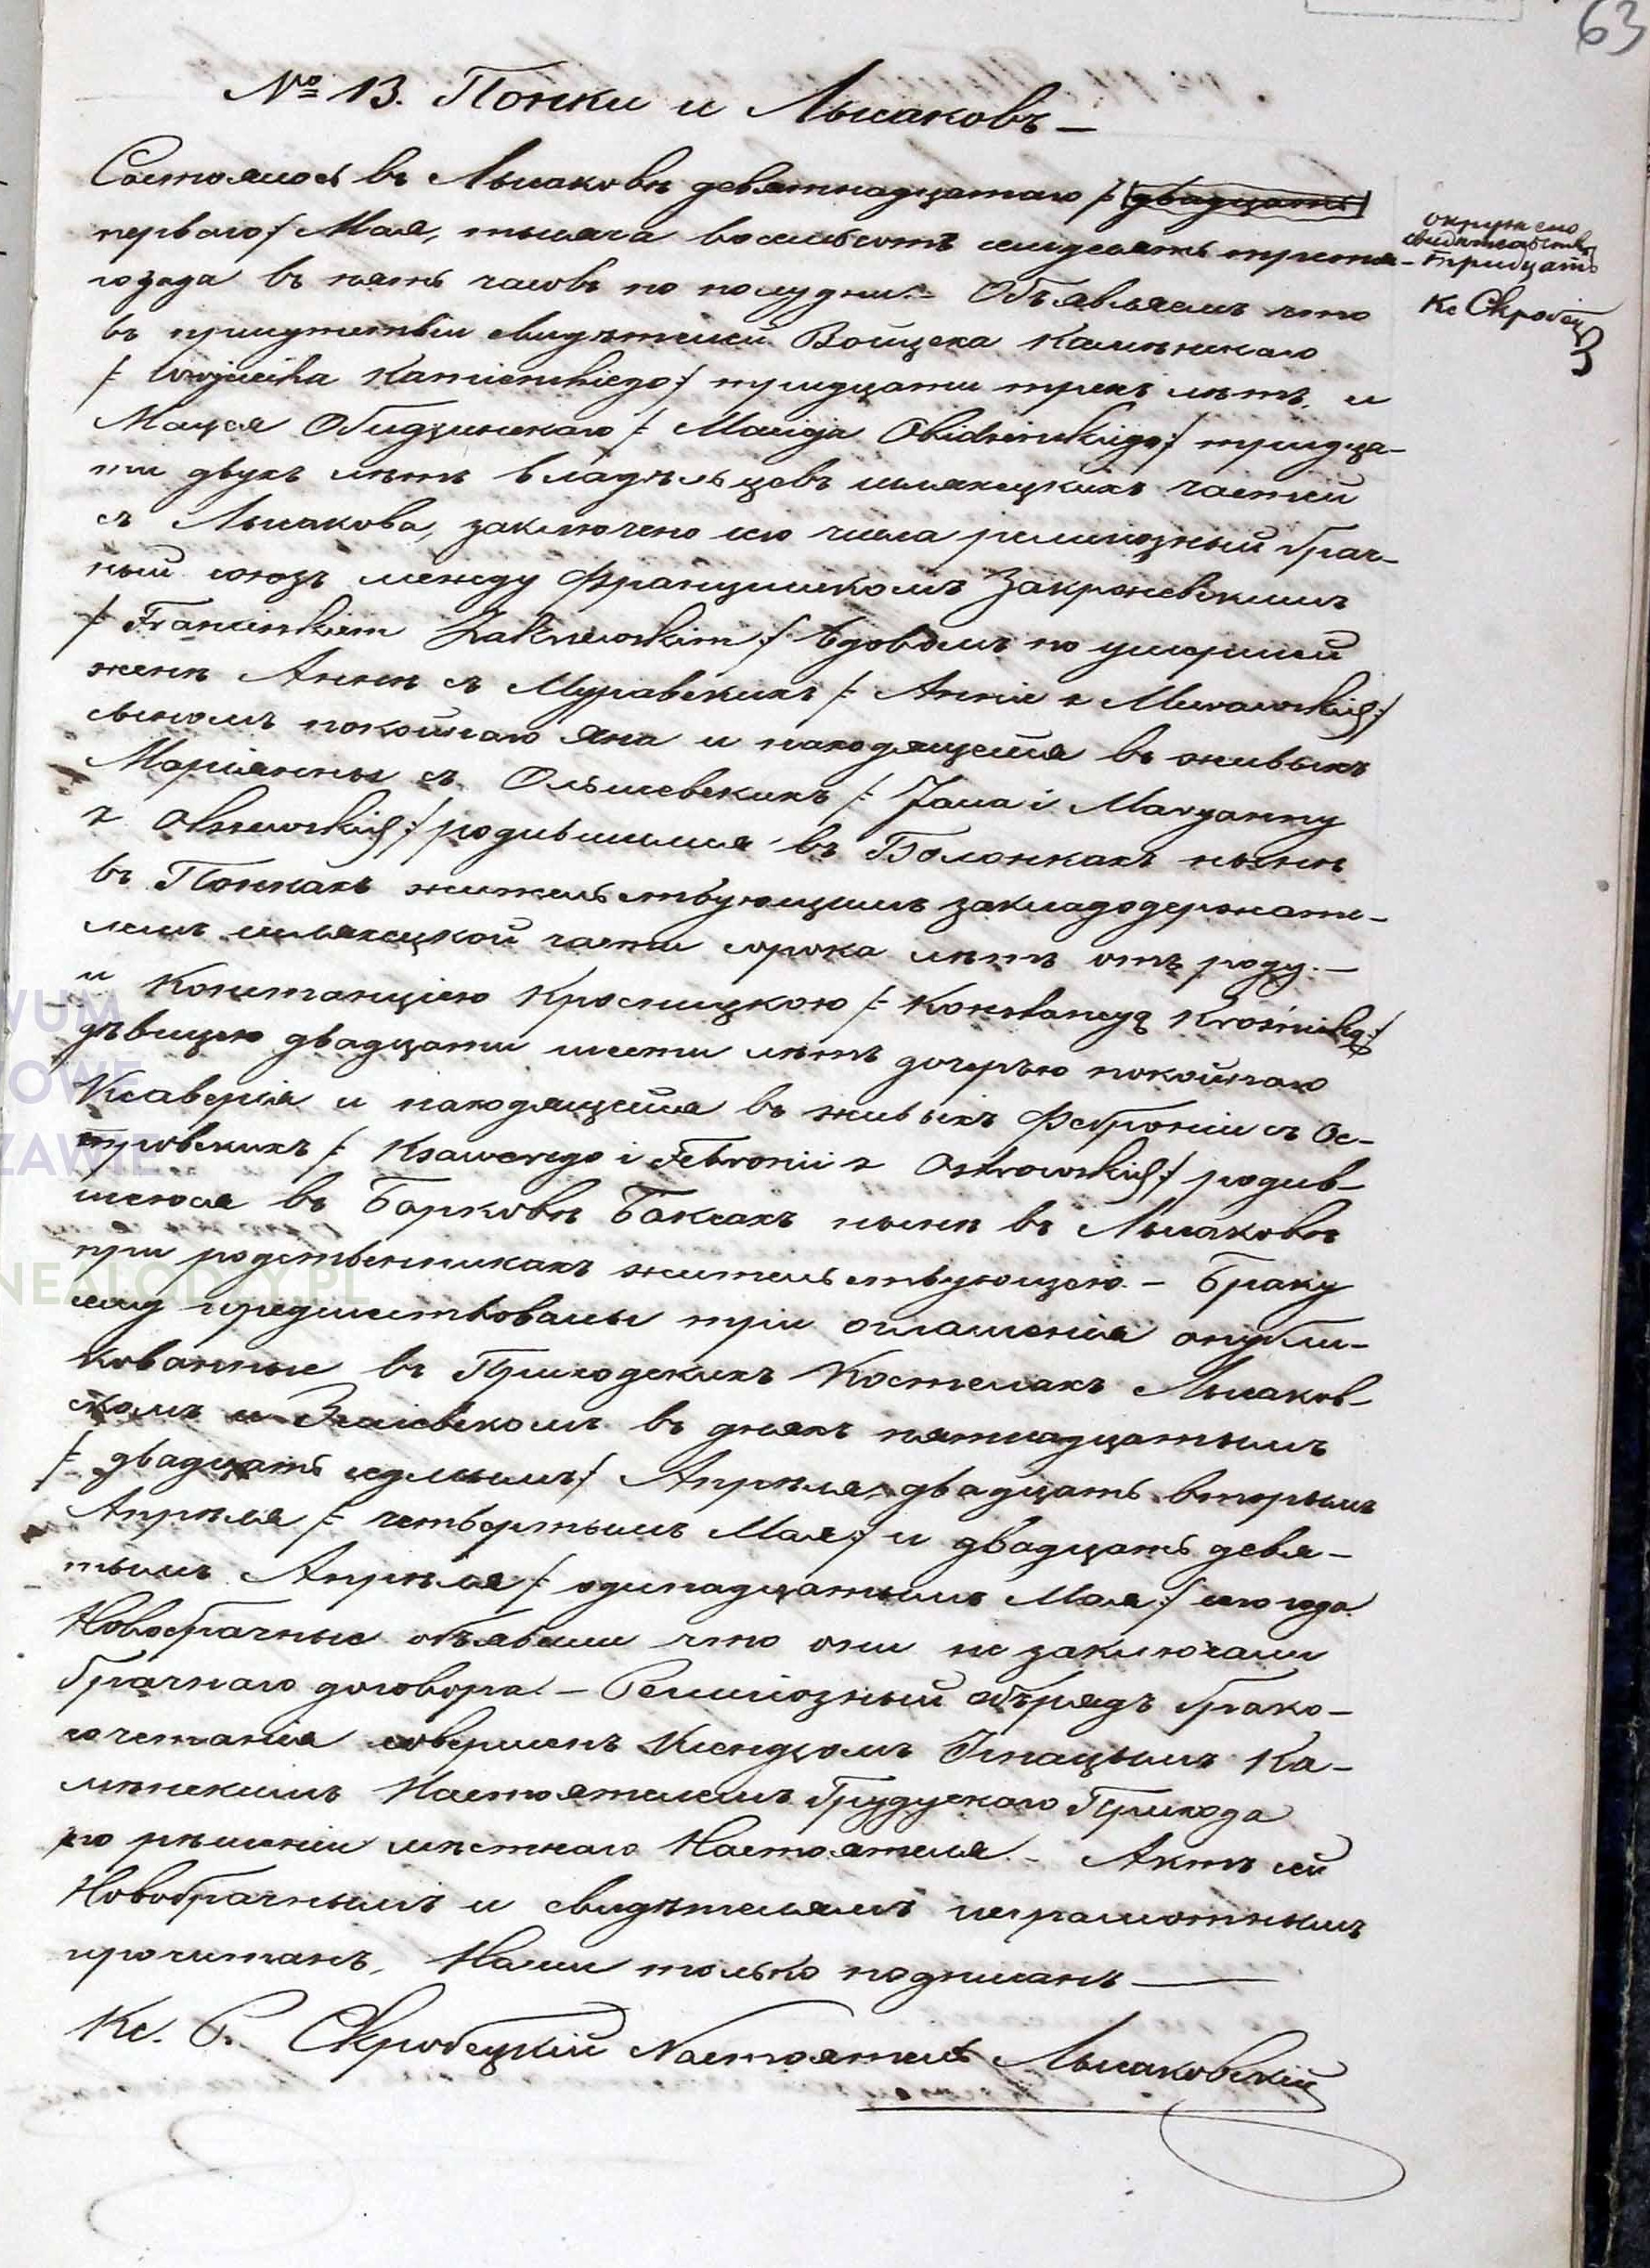 63
№ 13. Понки и Лысаковъ —
Состоялось въ Лысаковѣ девятнадцатаго /: двадцать
перваго :/ Мая, тысяча восемьсотъ семдесятъ третья-
го года въ пять часовъ по полудни. – Объявляемъ что
въ присутствіи свидѣтелей Войцеха Каменскаго
/: Wojciecha Kamieńskiego :/ тридцати трехъ лѣтъ, и
Мацея Обидзинскаго /: Macieja Obidzińskiego :/ тридца-
ти двухъ лѣтъ владѣльцевъ шляхецкихъ частей
съ Лысакова, заключено сего числа религіозный брач-
ный союзъ между Францишкомъ Закржевскимъ
/: Franciszkiem Zakrzewskim :/ вдовомъ по умершей
женѣ Аннѣ съ Муравскихъ /: Annie z Murawskich :/
сыномъ покойнаго Яна и находящейся въ живыхъ
Маріянны съ Ольшевскихъ /: Jana i Maryanny
z Olszewskich :/ родившимся въ Болонкахъ нынѣ
въ Понкахъ жительствующимъ закладодержате-
лемъ шляхецкой части сорока лѣтъ отъ роду. –
и Констанціею Кросницкою /: Konstancyą Krośnicką :/
дѣвицею двадцати шести лѣтъ дочерью покойнаго
Ксаверія и находящейся въ живыхъ Феброніи съ Ос-
тровскихъ /: Ksawerego i Febronii z Ostrowskich :/ родив-
шеюся въ Барковѣ Баксахъ нынѣ въ Лысаковѣ
при родственникахъ жительствующею. – Браку
сему предшествовали три оглашенія опубли-
кованные въ Приходскихъ Костелахъ Лысаков-
скомъ и въ дняхъ пятнадцатымъ
/: двадцать седмымъ :/ Апрѣля, двадцать вторымъ
Апрѣля /: четвертымъ Мая :/ и двадцать девя-
тымъ Апрѣля /: одинадцатымъ Мая :/ сего года.
Новобрачные объявили что они не заключали
брачнаго договора. – Религіозный обрядъ брако-
сочетанія совершенъ Ксендзомъ Игнацымъ Ка-
мѣнскимъ Настоятелемъ Грудускаго Прихода
по рѣшеніи мѣстнаго Настоятеля. – Актъ сей
Новобрачнымъ и свидѣтелямъ неграмотнымъ
прочитанъ, Нами только подписанъ —
Кс. Р. Скробецкій Настоятель Лысаковскій
окружено
свидѣтельствую
тридцать
Кс Скробец